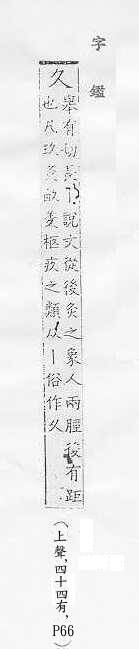 字鑑
久
舉有切長也說文從後灸之象人兩脛後有距
也凡玖羑畝𦍋柩疚之類从久俗作夂
（上聲，四十四有，P66）